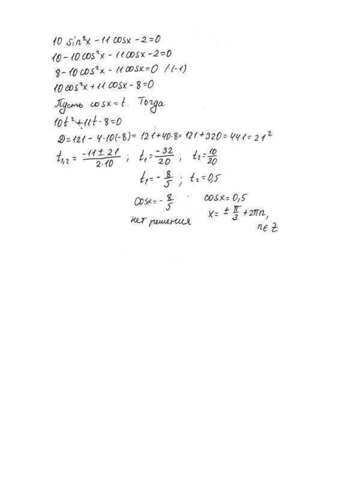 10 sin²x - 11 cosx - 2 = 0
10 - 10cos²x - 11cosx - 2 = 0
8 - 10cos²x - 11cosx = 0 /·(-1)
10cos²x + 11cosx - 8 = 0
Пусть cosx = t. Тогда
10t² + 11t - 8 = 0
D = 121 - 4·10·(-8) = 121 + 40·8 = 121 + 320 = 441 = 21²
t₁,₂ = (-11 ± 21)/(2·10) ; t₁ = -32/20 ; t₂ = 10/20
t₁ = -8/5 ; t₂ = 0,5
cosx = -8/5 cosx = 0,5
нет решения x = ± π/3 + 2πn,
n∈Z